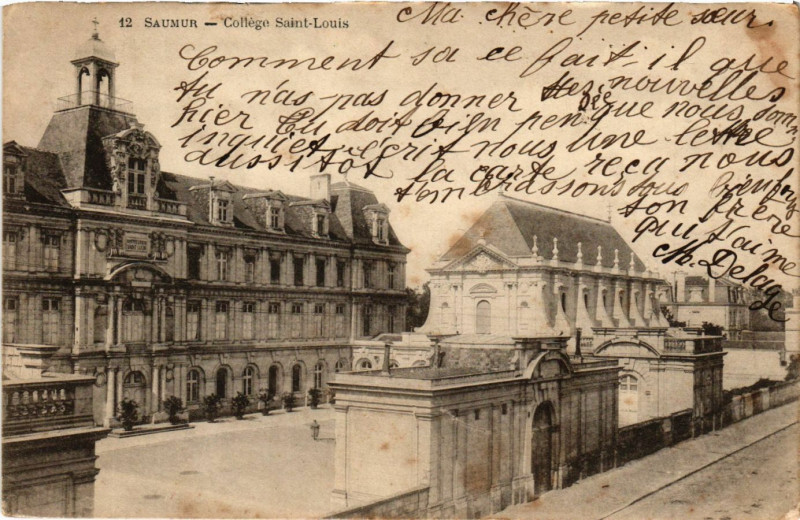 12 SAUMUR — Collège Saint-Louis
Ma chère petite sœur.
Comment sa ce fait-il que
tu n'as pas donner des nouvelles
hier tu doit bien pensée que nous somm
inquiet écrit nous une lettre
aussitôt la carte reçu nous
t'embrassons tous bien fort
ton frère
qui t'aime
M. Delage